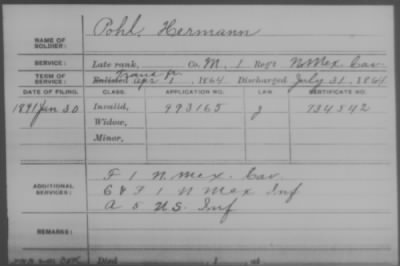 NAME OF SOLDIER: Pohl, Hermann
SERVICE: Late rank, Co. M, 1 Reg't N Mex. Cav.
TERM OF SERVICE: Enlisted Apr 1, 1864 Discharged July 31, 1864
DATE OF FILING. CLASS. APPLICATION NO. LAW. CERTIFICATE NO.
1891 Jan 30 Invalid, 993165 g 734842
Widow,
Minor,
F 1 N. Mex. Cav.
ADDITIONAL SERVICES: G & F 1 N Mex Inf
A 5 U.S. Inf
REMARKS:
Died